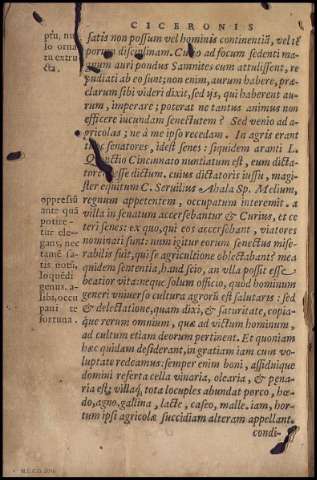 CICERONIS
satis non possum vel hominis continentiã, vel tẽ
porum disciplinam. Curio ad focum sedenti ma
gnum auri pondus Samnites cum attulissent, re
pudiati ab eo sunt; non enim, aurum habere, præ
clarum sibi videri dixit, sed ijs, qui haberent au-
rum, imperare; poterat ne tantus animus non
efficere iucundam senectutem? Sed venio ad a-
gricolas; ne à me ipso recedam. In agris erant
senatores, idest senes: siquidem aranti L.
Quinctio Cincinnato nuntiatum est, eum dicta-
torem esse dictum. cuius dictatoris iussu, magi-
ster equitum C. Seruilius Ahala Sp. Melium,
regnum appetentem, occupatum interemit. a
villa in senatum accersebantur & Curius, et ce
teri senes: ex quo, qui eos accersebant, viatores
nominati sunt: num igitur eorum senectus mise-
rabilis fuit, qui se agricultione oblectabant? mea
quidem sententia, haud scio, an vlla possit esse
beatior vita: neque solum officio, quod hominum
generi vniuerso cultura agrorũ est salutaris: sed
& delectatione, quam dixi, & saturitate, copia-
que rerum omnium, quæ ad victum hominum,
ad cultum etiam deorum pertinent. Et quoniam
hæc quidam desiderant, in gratiam iam cum vo-
luptate redeamus: semper enim boni, assiduique
domini referta cella vinaria, olearia, & pena-
ria est; villaq́; tota locuples abundat porco, hœ-
do, agno, gallina, lacte, caseo, melle. iam, hor-
tum ipsi agricolæ succidiam alteram appellant.
condi-
lo orna
tu extru
cta.
oppressũ
ante quã
potire-
tur ele-
gans, nec
tamẽ sa-
tis notũ
loquẽdi
genus. a-
libi, occu
pani te
fortuna.
B.U.C.O. 2016